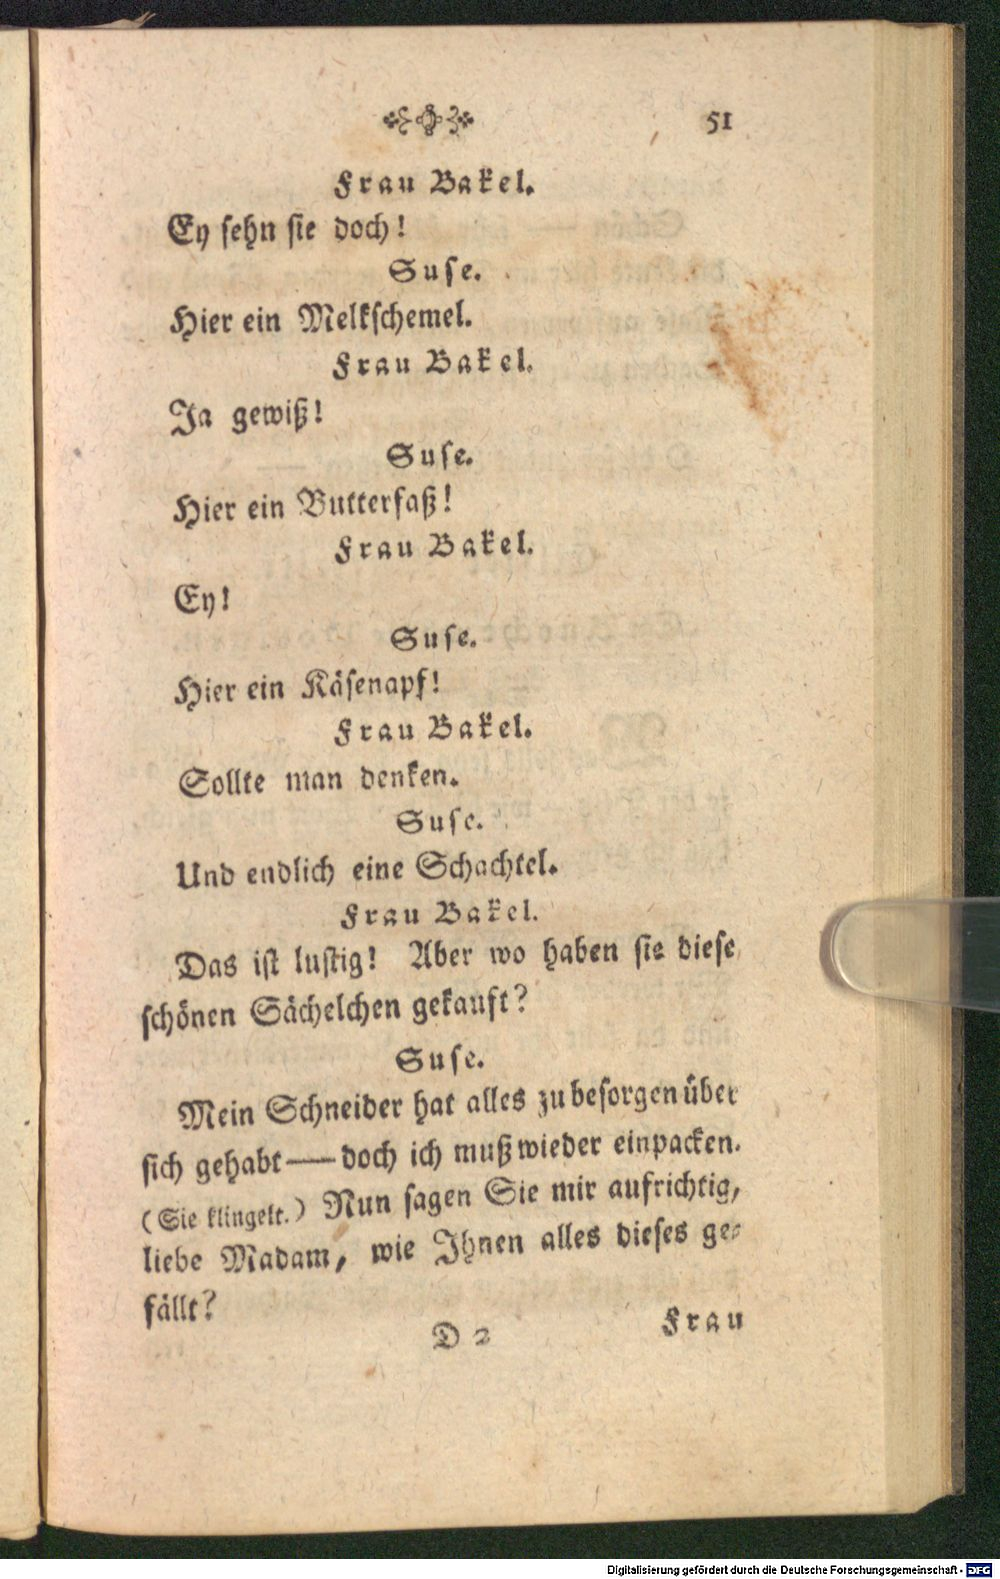 51
Frau Bakel.
Ey sehn sie doch!
Suse.
Hier ein Melkschemel.
Frau Bakel.
Ja gewiß!
Suse.
Hier ein Butterfaß!
Frau Bakel.
Ey!
Suse.
Hier ein Käsenapf!
Frau Bakel.
Sollte man denken.
Suse.
Und endlich eine Schachtel.
Frau Bakel.
Das ist lustig! Aber wo haben sie diese
schönen Sächelchen gekauft?
Suse.
Mein Schneider hat alles zu besorgen über
sich gehabt — doch ich muß wieder einpacken.
(Sie klingelt.) Nun sagen Sie mir aufrichtig,
liebe Madam, wie Ihnen alles dieses ge-
fällt?
D 2 Frau
Digitalisierung gefördert durch die Deutsche Forschungsgemeinschaft - DFG